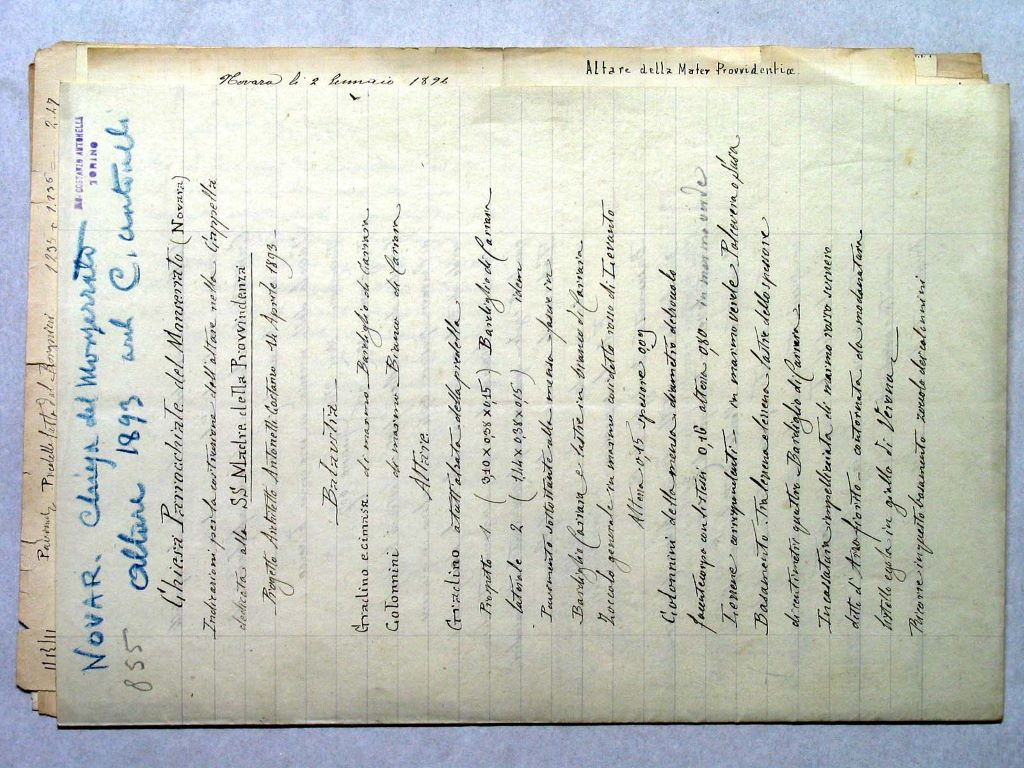 Novara li 2 Gennaio 1894
Altare della Mater Provvidentiæ.
1235 + 1.235 = 2.47
ING. COSTANZO ANTONELLI
TORINO
NOVAR. Chiesa del Monserrato
altare 1893 arch C. Antonelli
855
Chiesa Parrocchiale del Monserrato (Novara)
Indicazioni per la costruzione dell'altare nella Cappella
dedicata alla SS Madre della Provvidenza
Progetto Architetto Antonelli Costanzo 14 Aprile 1893
Balaustra
Gradino e cimasa di marmo Bardiglio di Carrara
Colonnini di marmo Bianco di Carrara
Altare
Gradino ed alzata della predella
Prospetto 1 (3,10 x 0,38 x 0,15) Bardiglio di Carrara
laterale 2 (1,14 x 0,38 x 0,15) idem
Pavimento sottostante alla mensa fascie in
Bardiglio Carrara e lastre in bianco di Carrara
Zoccolo generale in marmo cosidetto rosso di Levanto
Altezza 0,15 spessore 0,09
Colonnini della mensa diametro del scuolo
con listelli 0,16 altezza 0,80 in marmo verde
Lesene corrispondenti in marmo verde Polcevera o Susa
Basamento tra lesena e lesena lastre dello spessore
di centimetri quattro Bardiglio di Carrara
Incassatura impelliciata di marmo rosso scuro
detto d'Arzo fiorito contornata da modanatura
listello e gola in giallo di Verona
Ricorre in questo basamento zoccolo dei colonnini